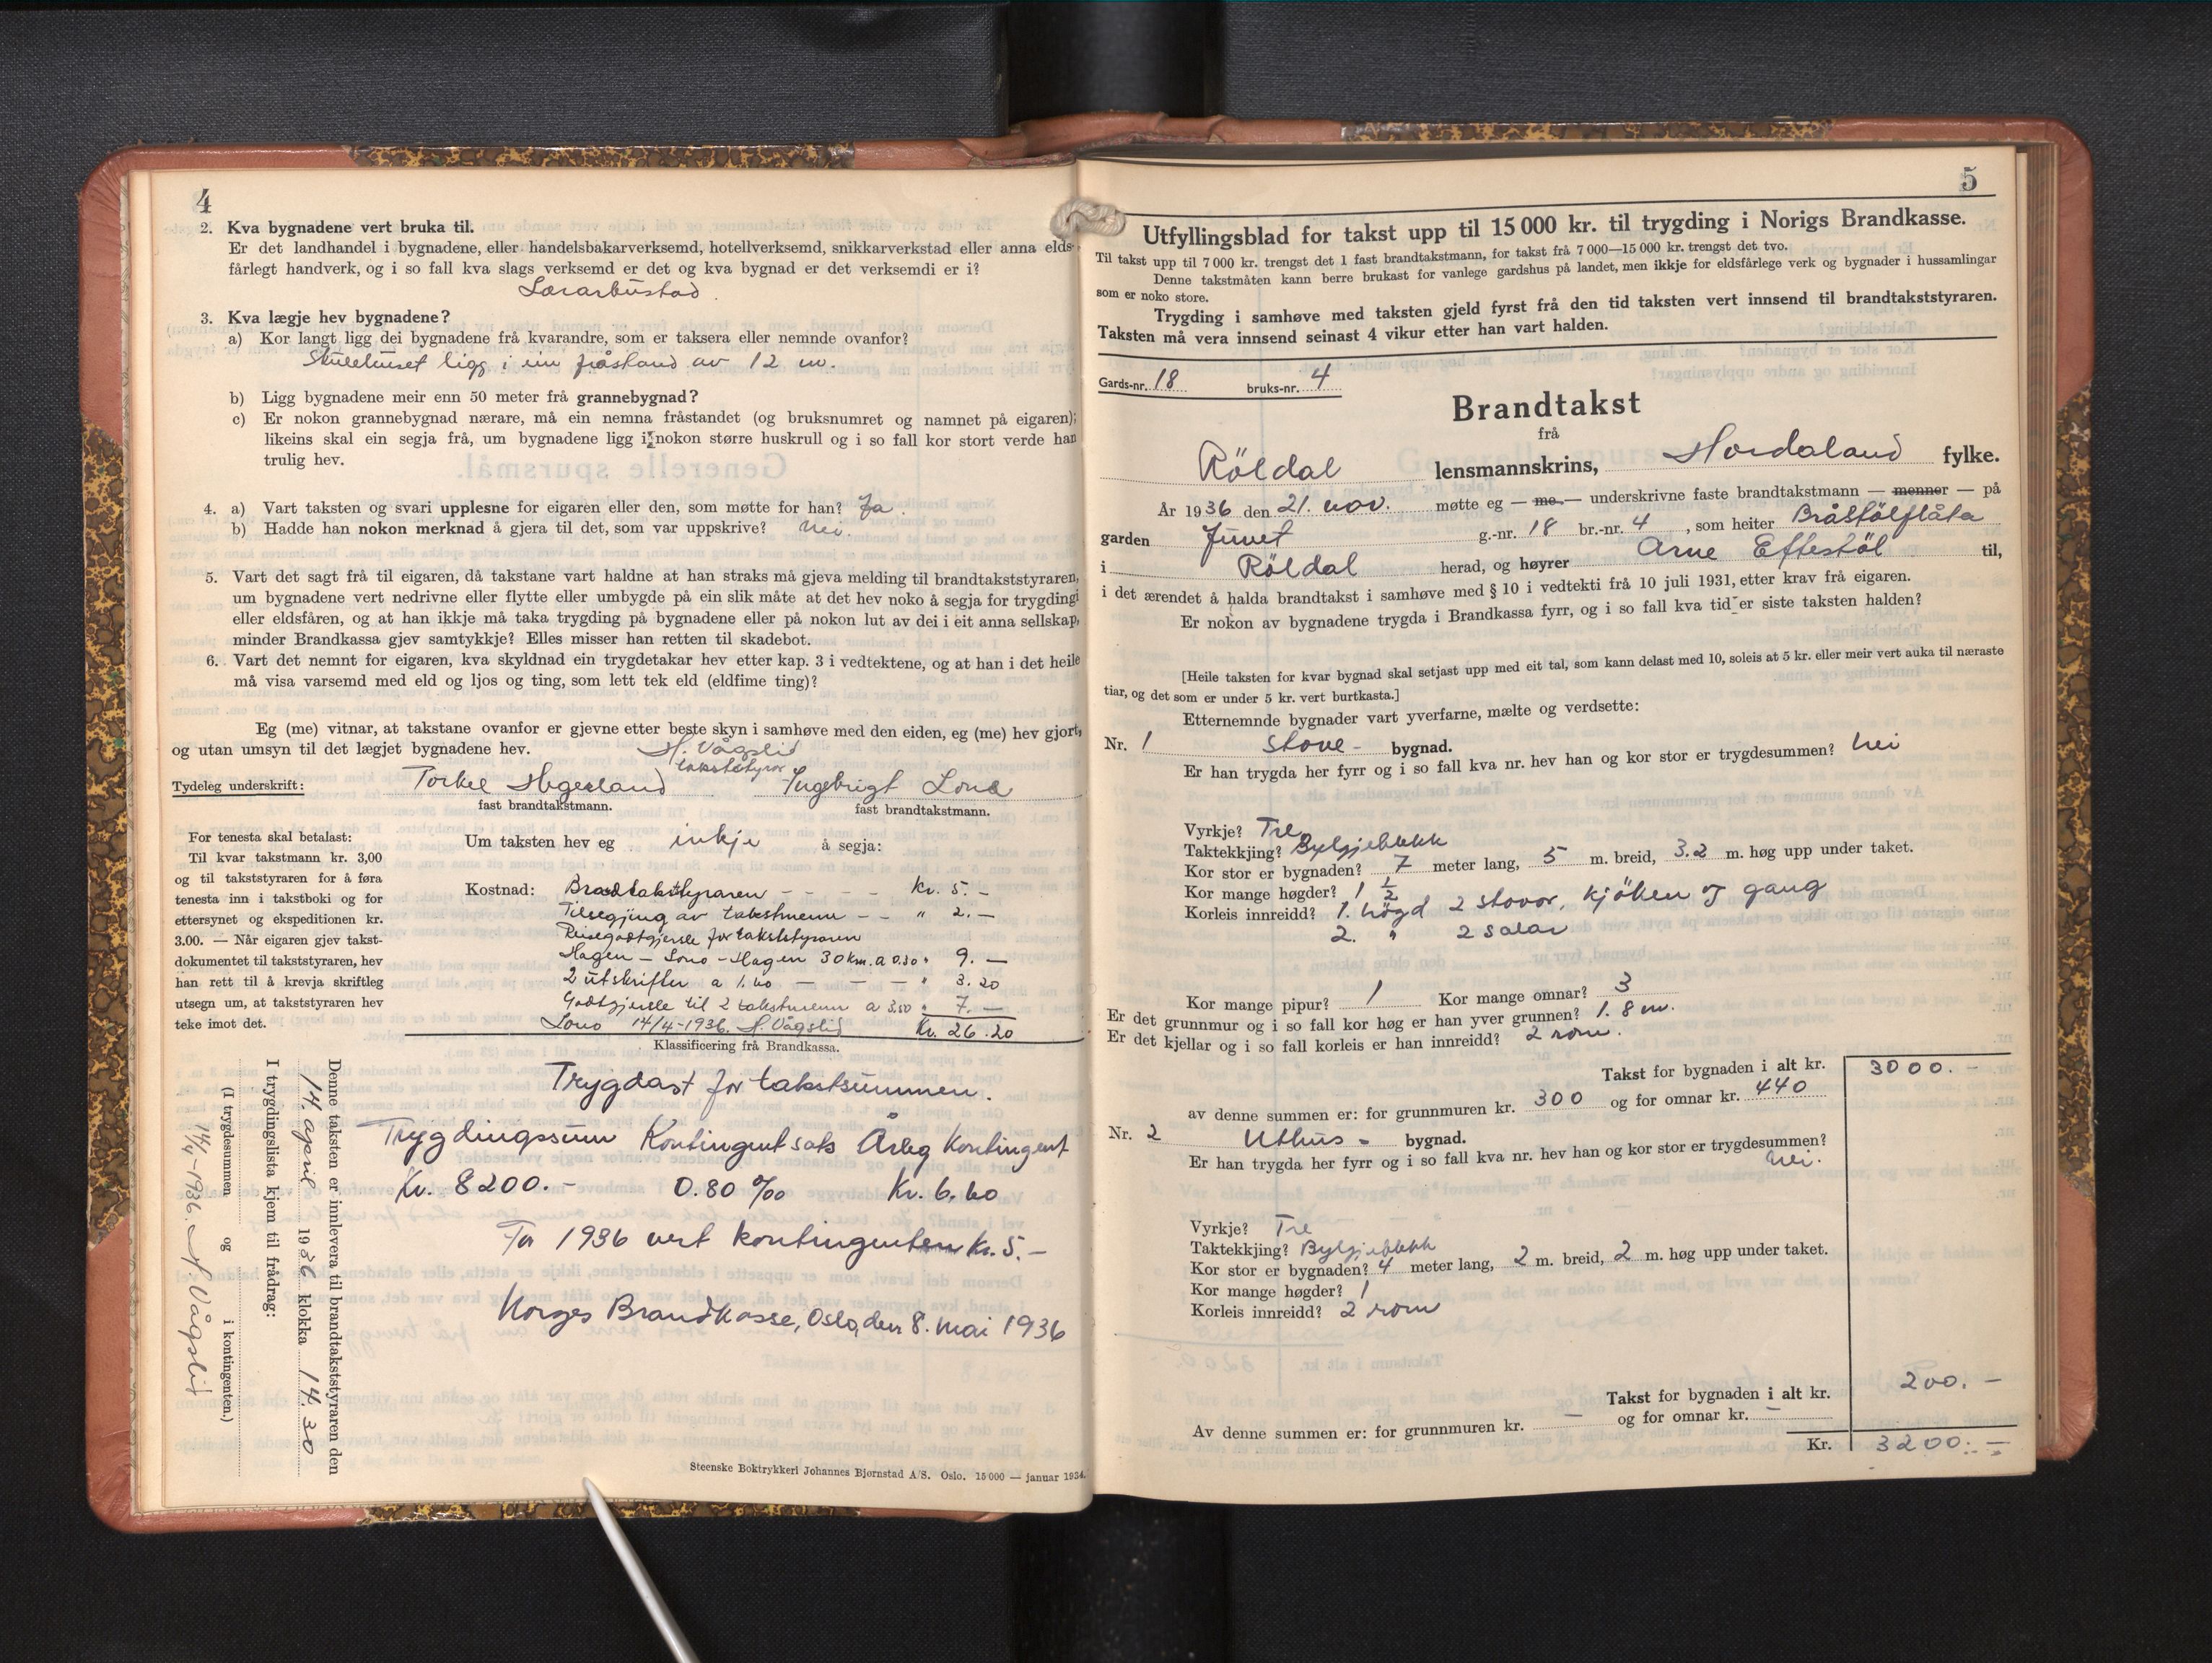 4
2. Kva bygnadene vert bruka til.
Er det landhandel i bygnadene, eller handelsbakarverksemd, hotellverksemd, snikkarverkstad eller anna elds-
fårlegt handverk, og i so fall kva slags verksemd er det og kva bygnad er det verksemdi er i?
Lærarbustad.
3. Kva lægje hev bygnadene?
a) Kor langt ligg dei bygnadene frå kvarandre, som er taksera eller nemnde ovanfor?
Skulehuset ligg i ein fråstand av 12 m.
b) Ligg bygnadene meir enn 50 meter frå grannebygnad?
c) Er nokon grannebygnad nærare, må ein nemna fråstandet (og bruksnumret og namnet på eigaren);
likeins skal ein segja frå, um bygnadene ligg i nokon større huskrull og i so fall kor stort verde han
trulig hev.
4. a) Vart taksten og svari upplesne for eigaren eller den, som møtte for han? Ja.
b) Hadde han nokon merknad å gjera til det, som var uppskrive? Nei.
5. Vart det sagt frå til eigaren, då takstane vart haldne at han straks må gjeva melding til brandtakststyraren,
um bygnadene vert nedrivne eller flytte eller umbygde på ein slik måte at det hev noko å segja for trygdingi
eller eldsfåren, og at han ikkje må taka trygding på bygnadene eller på nokon lut av dei i eit anna sellskap,
minder Brandkassa gjev samtykkje? Elles misser han retten til skadebot.
6. Vart det nemnt for eigaren, kva skyldnad ein trygdetakar hev etter kap. 3 i vedtektene, og at han i det heile
må visa varsemd med eld og ljos og ting, som lett tek eld (eldfime ting)?
Eg (me) vitnar, at takstane ovanfor er gjevne etter beste skyn i samhøve med den eiden, eg (me) hev gjort,
og utan umsyn til det lægjet bygnadene hev.
H. Vågslid
takststyrar
Tydeleg underskrift: Torkel Hegerland Ingebrigt Lone
fast brandtakstmann. fast brandtakstmann.
For tenesta skal betalast:
Til kvar takstmann kr. 3,00
og til takststyraren for å føra
tenesta inn i takstboki og for
ettersynet og ekspeditionen kr.
3.00. — Når eigaren gjev takst-
dokumentet til takststyraren, hev
han rett til å krevja skriftleg
utsegn um, at takststyraren hev
teke imot det.
Um taksten hev eg inkje å segja:
Kostnad: Brandtakstyraren - - - - Kr. 5. -
Tilsegjing av takstmenn - - " 2. —
Reisegodtgjersle for takststyraren
Hagen - Lono - Hagen 30 km. a 0.30 " 9. —
2 utskrifter a 1.60 — — — " 3.20
Godtgjersle til 2 takstmenn a 3.50 " 7. —
Lono 14/4-1936. H. Vågslid Kr. 26.20
Klassificering frå Brandkassa.
Trygdast for takstsummen.
Trygdingssum Kontingentsats Årleg Kontingent
Kr. 8200. - 0.80 ‰ Kr. 6.60
For 1936 vert kontingenten Kr. 5. -
Norges Brandkasse, Oslo, den 8. mai 1936
Denne taksten er innlevera til brandtakststyraren den
14. april 1936 klokka 14.30
I trygdingslista kjem til frådrag:
(I trygdesummen og i kontingenten.)
14/4-1936. H. Vågslid
Steenske Boktrykkeri Johannes Bjørnstad A/S. Oslo. 15 000 — januar 1934.
5
Utfyllingsblad for takst upp til 15 000 kr. til trygding i Norigs Brandkasse.
Til takst upp til 7 000 kr. trengst det 1 fast brandtakstmann, for takst frå 7 000—15 000 kr. trengst det tvo.
Denne takstmåten kann berre brukast for vanlege gardshus på landet, men ikkje for eldsfårlege verk og bygnader i hussamlingar
som er noko store.
Trygding i samhøve med taksten gjeld fyrst frå den tid taksten vert innsend til brandtakststyraren.
Taksten må vera innsend seinast 4 vikur etter han vart halden.
Gards-nr. 18 bruks-nr. 4
Brandtakst
frå
Röldal lensmannskrins, Hordaland fylke.
År 1936 den 21. nov. møtte eg — me — underskrivne faste brandtakstmann — menner — på
garden Juvet g.-nr. 18 br.-nr. 4, som heiter Bråstölflåta
i Röldal herad, og høyrer Arne Eftestöl til,
i det ærendet å halda brandtakst i samhøve med § 10 i vedtekti frå 10 juli 1931, etter krav frå eigaren.
Er nokon av bygnadene trygda i Brandkassa fyrr, og i so fall kva tid er siste taksten halden?
[Heile taksten for kvar bygnad skal setjast upp med eit tal, som kann delast med 10, soleis at 5 kr. eller meir vert auka til næraste
tiar, og det som er under 5 kr. vert burtkasta.]
Etternemnde bygnader vart yverfarne, mælte og verdsette:
Nr. 1 Stove- bygnad.
Er han trygda her fyrr og i so fall kva nr. hev han og kor stor er trygdesummen? Nei
Vyrkje? Tre
Taktekkjing? Bylgjeblekk
Kor stor er bygnaden? 7 meter lang, 5 m. breid, 3.2 m. høg upp under taket.
Kor mange høgder? 1 1/2
Korleis innreidd? 1. högd 2 stovor, kjöken og gang
2. " 2 salar
Kor mange pipur? 1 Kor mange omnar? 3
Er det grunnmur og i so fall kor høg er han yver grunnen? 1.8 m.
Er det kjellar og i so fall korleis er han innreidd? 2 rom.
Takst for bygnaden i alt kr. 3000. -
av denne summen er: for grunnmuren kr. 300 og for omnar kr. 440
Nr. 2 Uthus - bygnad.
Er han trygda her fyrr og i so fall kva nr. hev han og kor stor er trygdesummen?
Nei.
Vyrkje? Tre
Taktekkjing? Bylgjeblekk
Kor stor er bygnaden? 4 meter lang, 2 m. breid, 2 m. høg upp under taket.
Kor mange høgder? 1
Korleis innreidd? 2 rom
Takst for bygnaden i alt kr. 200. -
Av denne summen er: for grunnmuren kr. — og for omnar kr. —
Kr. 3200. -